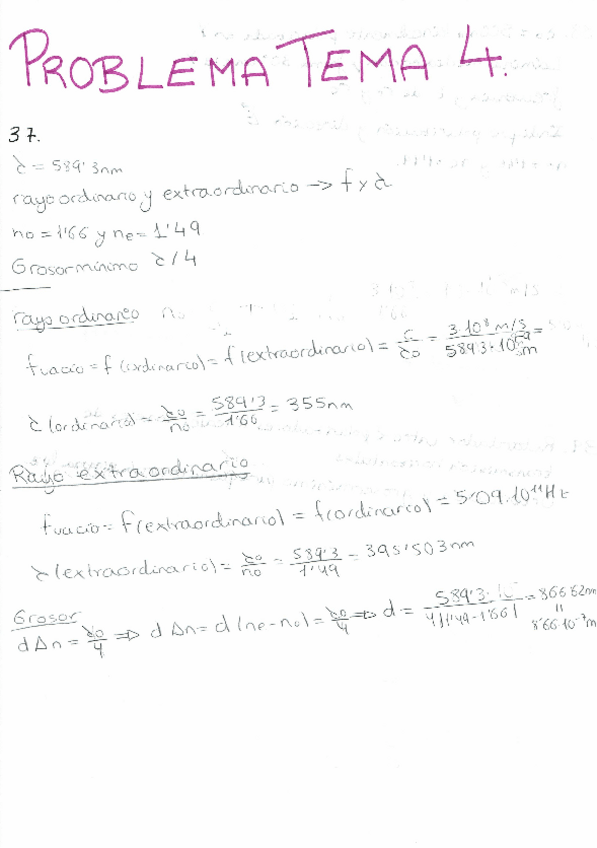 PROBLEMA TEMA 4.
37.
λ = 589'3nm
rayo ordinario y extraordinario → f y λ
no = 1'66 y ne = 1'49
Grosor mínimo λ/4
rayo ordinario
fvacío = f(ordinario) = f(extraordinario) = c/λo = 3·10⁸ m/s / 589'3·10⁻⁹ m =
λ(ordinario) = λo/no = 589'3/1'66 = 355nm
Rayo extraordinario
fvacío = f(extraordinario) = f(ordinario) = 5'09·10¹⁴ Hz
λ(extraordinario) = λo/no = 589'3/1'49 = 395'503nm
Grosor
dΔn = λo/4 ⇒ dΔn = d(ne-no) = λo/4 ⇒ d = 589'3 / 4|1'49-1'66| = 866'62nm
=
8'66·10⁻⁷m